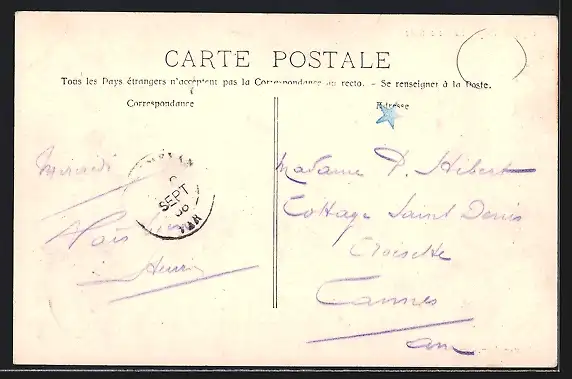 CARTE POSTALE
Tous les Pays étrangers n'acceptent pas la Correspondance au recto. - Se renseigner à la Poste.
Correspondance
Adresse
SEPT
VAR
Henri
Madame P. Hibert
Cottage Saint Denis
Croisette
Cannes